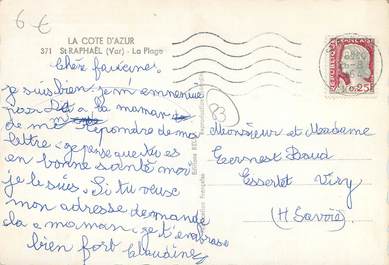 6 €
LA COTE D'AZUR
371 St RAPHAËL (Var) - La Plage
Chère
je suis bien. je m'ennuie
pas. a la maman
de me repondre de ma
lettre. je pense que tu es
en bonne santé moi
je le suis. Si tu veux
mon adresse demande
la a maman. je t'embrasse
bien fort Claudine
83
Monsieur et Madame
Ernest Baud
Essertet Viry
(H Savoie)
REPUBLIQUE FRANÇAISE
0,25F